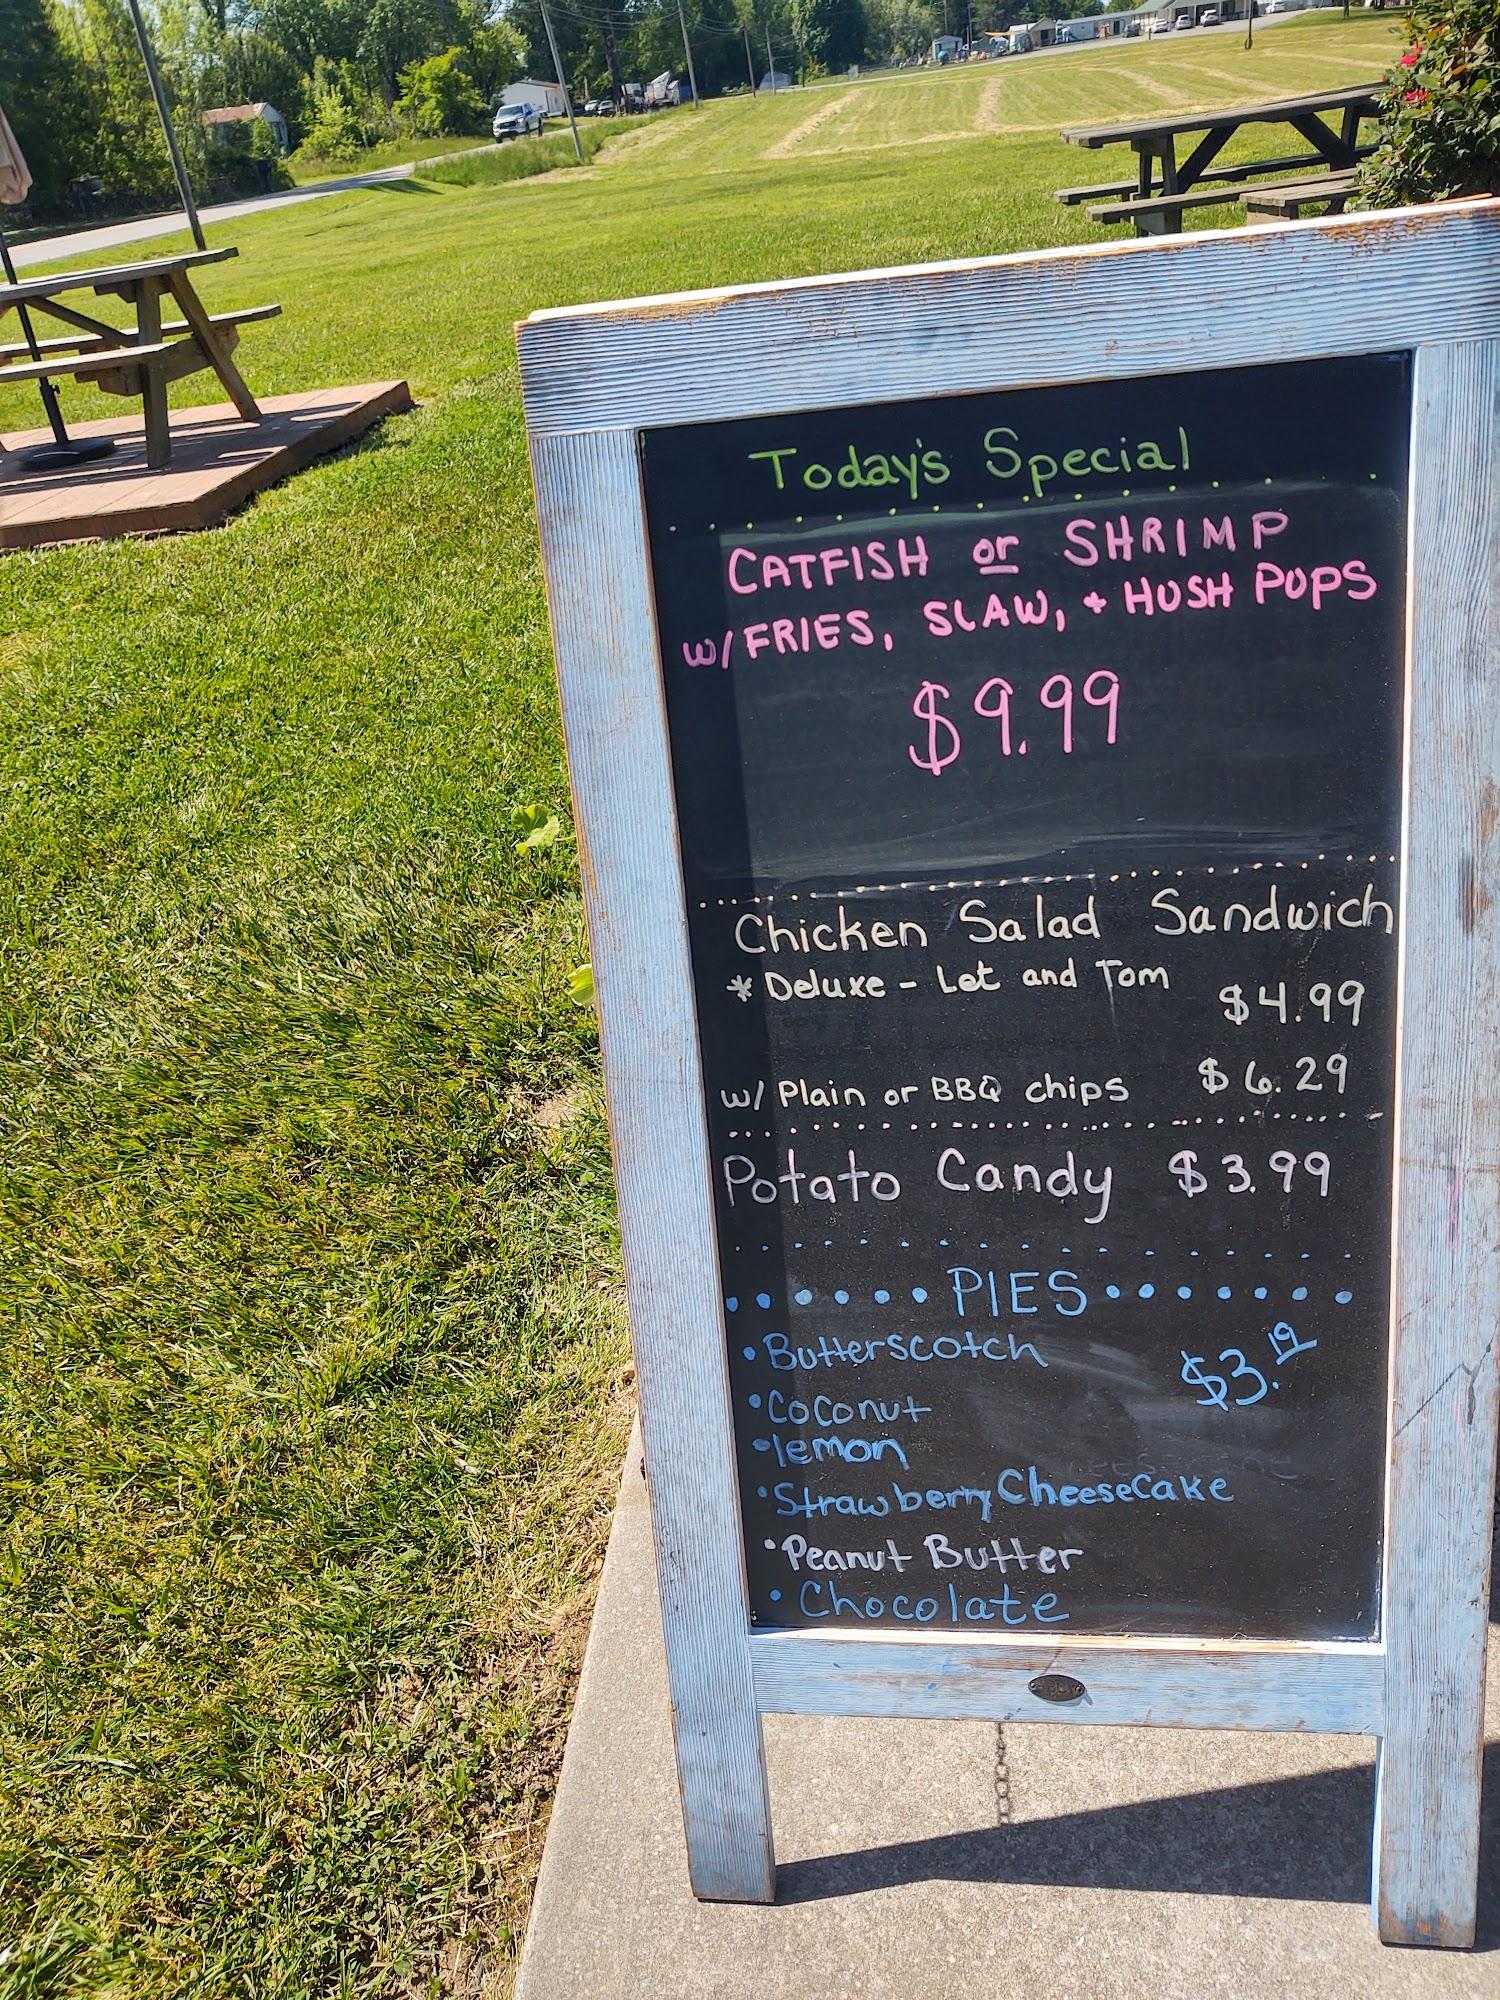 Today's Special
CATFISH or SHRIMP
w/ FRIES, SLAW, + HUSH PUPS
$9.99
Chicken Salad Sandwich
* Deluxe - Let and Tom
$4.99
w/ Plain or BBQ chips $6.29
Potato Candy $3.99
PIES
• Butterscotch $3.19
• Coconut
• lemon
• Strawberry CheeseCake
• Peanut Butter
• Chocolate